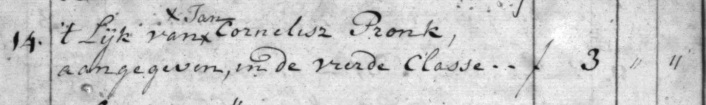 x Jan
14. 't Lijk van x Cornelisz Pronk,
aangegeven, in de vierde Classe .. ƒ 3 " "